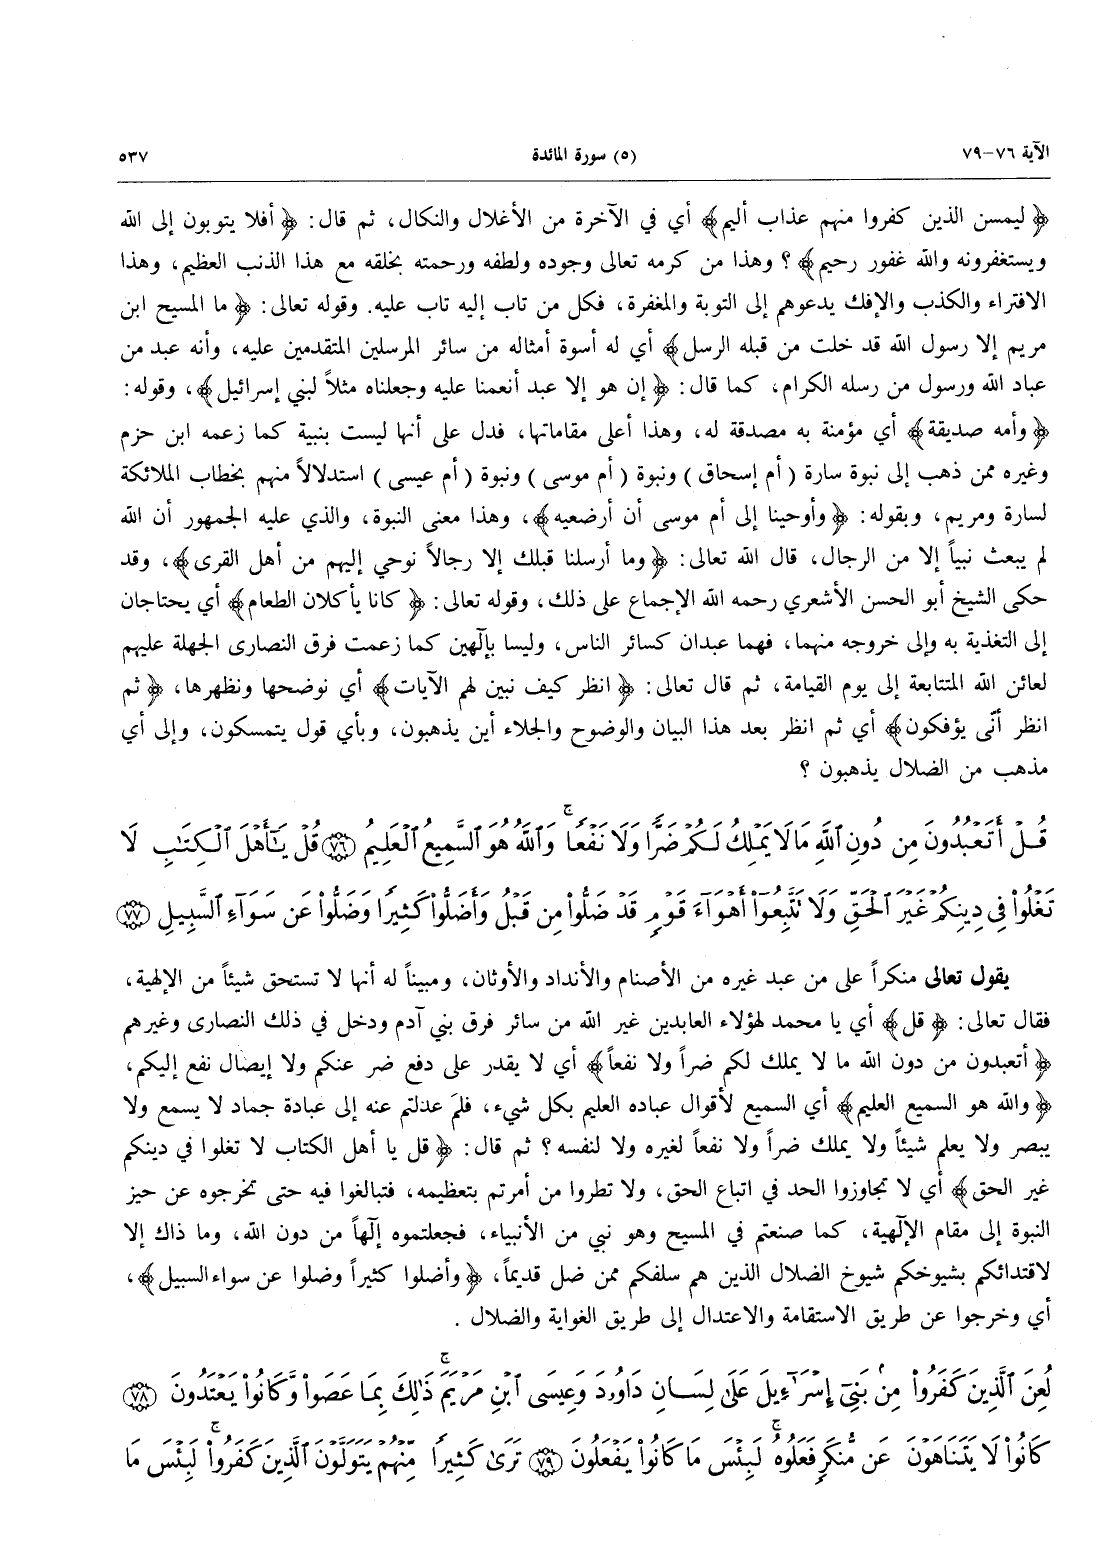 الآية ٧٦-٧٩ (٥) سورة المائدة ٥٣٧
﴿ ليمسن الذين كفروا منهم عذاب أليم ﴾ أي في الآخرة من الأغلال والنكال، ثم قال: ﴿ أفلا يتوبون إلى الله
ويستغفرونه والله غفور رحيم ﴾ ؟ وهذا من كرمه تعالى وجوده ولطفه ورحمته بخلقه مع هذا الذنب العظيم، وهذا
الافتراء والكذب والإفك يدعوهم إلى التوبة والمغفرة، فكل من تاب إليه تاب عليه. وقوله تعالى: ﴿ ما المسيح ابن
مريم إلا رسول الله قد خلت من قبله الرسل ﴾ أي له أسوة أمثاله من سائر المرسلين المتقدمين عليه، وأنه عبد من
عباد الله ورسول من رسله الكرام، كما قال: ﴿ إن هو إلا عبد أنعمنا عليه وجعلناه مثلاً لبني إسرائيل ﴾، وقوله:
﴿ وأمه صديقة ﴾ أي مؤمنة به مصدقة له، وهذا أعلى مقاماتها، فدل على أنها ليست بنبية كما زعمه ابن حزم
وغيره ممن ذهب إلى نبوة سارة ( أم إسحاق ) ونبوة ( أم موسى ) ونبوة ( أم عيسى ) استدلالاً منهم بخطاب الملائكة
لسارة ومريم، وبقوله: ﴿ وأوحينا إلى أم موسى أن أرضعيه ﴾، وهذا معنى النبوة، والذي عليه الجمهور أن الله
لم يبعث نبياً إلا من الرجال، قال الله تعالى: ﴿ وما أرسلنا قبلك إلا رجالاً نوحي إليهم من أهل القرى ﴾، وقد
حكى الشيخ أبو الحسن الأشعري رحمه الله الإجماع على ذلك، وقوله تعالى: ﴿ كانا يأكلان الطعام ﴾ أي يحتاجان
إلى التغذية به وإلى خروجه منهما، فهما عبدان كسائر الناس، وليسا بإلٓهين كما زعمت فرق النصارى الجهلة عليهم
لعائن الله المتتابعة إلى يوم القيامة، ثم قال تعالى: ﴿ انظر كيف نبين لهم الآيات ﴾ أي نوضحها ونظهرها، ﴿ ثم
انظر أنّى يؤفكون ﴾ أي ثم انظر بعد هذا البيان والوضوح والجلاء أين يذهبون، وبأي قول يتمسكون، وإلى أي
مذهب من الضلال يذهبون ؟
قُلْ أَتَعْبُدُونَ مِن دُونِ ٱللَّهِ مَا لَا يَمْلِكُ لَكُمْ ضَرًّا وَلَا نَفْعًا ۚ وَٱللَّهُ هُوَ ٱلسَّمِيعُ ٱلْعَلِيمُ ﴿٧٦﴾ قُلْ يَـٰٓأَهْلَ ٱلْكِتَـٰبِ لَا
تَغْلُوا۟ فِى دِينِكُمْ غَيْرَ ٱلْحَقِّ وَلَا تَتَّبِعُوٓا۟ أَهْوَآءَ قَوْمٍ قَدْ ضَلُّوا۟ مِن قَبْلُ وَأَضَلُّوا۟ كَثِيرًا وَضَلُّوا۟ عَن سَوَآءِ ٱلسَّبِيلِ ﴿٧٧﴾
يقول تعالى منكراً على من عبد غيره من الأصنام والأنداد والأوثان، ومبيناً له أنها لا تستحق شيئاً من الإلهية،
فقال تعالى: ﴿ قل ﴾ أي يا محمد لهؤلاء العابدين غير الله من سائر فرق بني آدم ودخل في ذلك النصارى وغيرهم
﴿ أتعبدون من دون الله ما لا يملك لكم ضراً ولا نفعاً ﴾ أي لا يقدر على دفع ضر عنكم ولا إيصال نفع إليكم،
﴿ والله هو السميع العليم ﴾ أي السميع لأقوال عباده العليم بكل شيء، فلمَ عدلتم عنه إلى عبادة جماد لا يسمع ولا
يبصر ولا يعلم شيئاً ولا يملك ضراً ولا نفعاً لغيره ولا لنفسه ؟ ثم قال: ﴿ قل يا أهل الكتاب لا تغلوا في دينكم
غير الحق ﴾ أي لا تجاوزوا الحد في اتباع الحق، ولا تطروا من أمرتم بتعظيمه، فتبالغوا فيه حتى تخرجوه عن حيز
النبوة إلى مقام الإلٓهية، كما صنعتم في المسيح وهو نبي من الأنبياء، فجعلتموه إلٓهاً من دون الله، وما ذاك إلا
لاقتدائكم بشيوخكم شيوخ الضلال الذين هم سلفكم ممن ضل قديماً، ﴿ وأضلوا كثيراً وضلوا عن سواء السبيل ﴾،
أي وخرجوا عن طريق الاستقامة والاعتدال إلى طريق الغواية والضلال .
لُعِنَ ٱلَّذِينَ كَفَرُوا۟ مِنۢ بَنِىٓ إِسْرَٰٓءِيلَ عَلَىٰ لِسَـانِ دَاوُۥدَ وَعِيسَى ٱبْنِ مَرْيَمَ ۚ ذَٰلِكَ بِمَا عَصَوا۟ وَّكَانُوا۟ يَعْتَدُونَ ﴿٧٨﴾
كَانُوا۟ لَا يَتَنَاهَوْنَ عَن مُّنكَرٍ فَعَلُوهُ ۚ لَبِئْسَ مَا كَانُوا۟ يَفْعَلُونَ ﴿٧٩﴾ تَرَىٰ كَثِيرًا مِّنْهُمْ يَتَوَلَّوْنَ ٱلَّذِينَ كَفَرُوا۟ ۚ لَبِئْسَ مَا